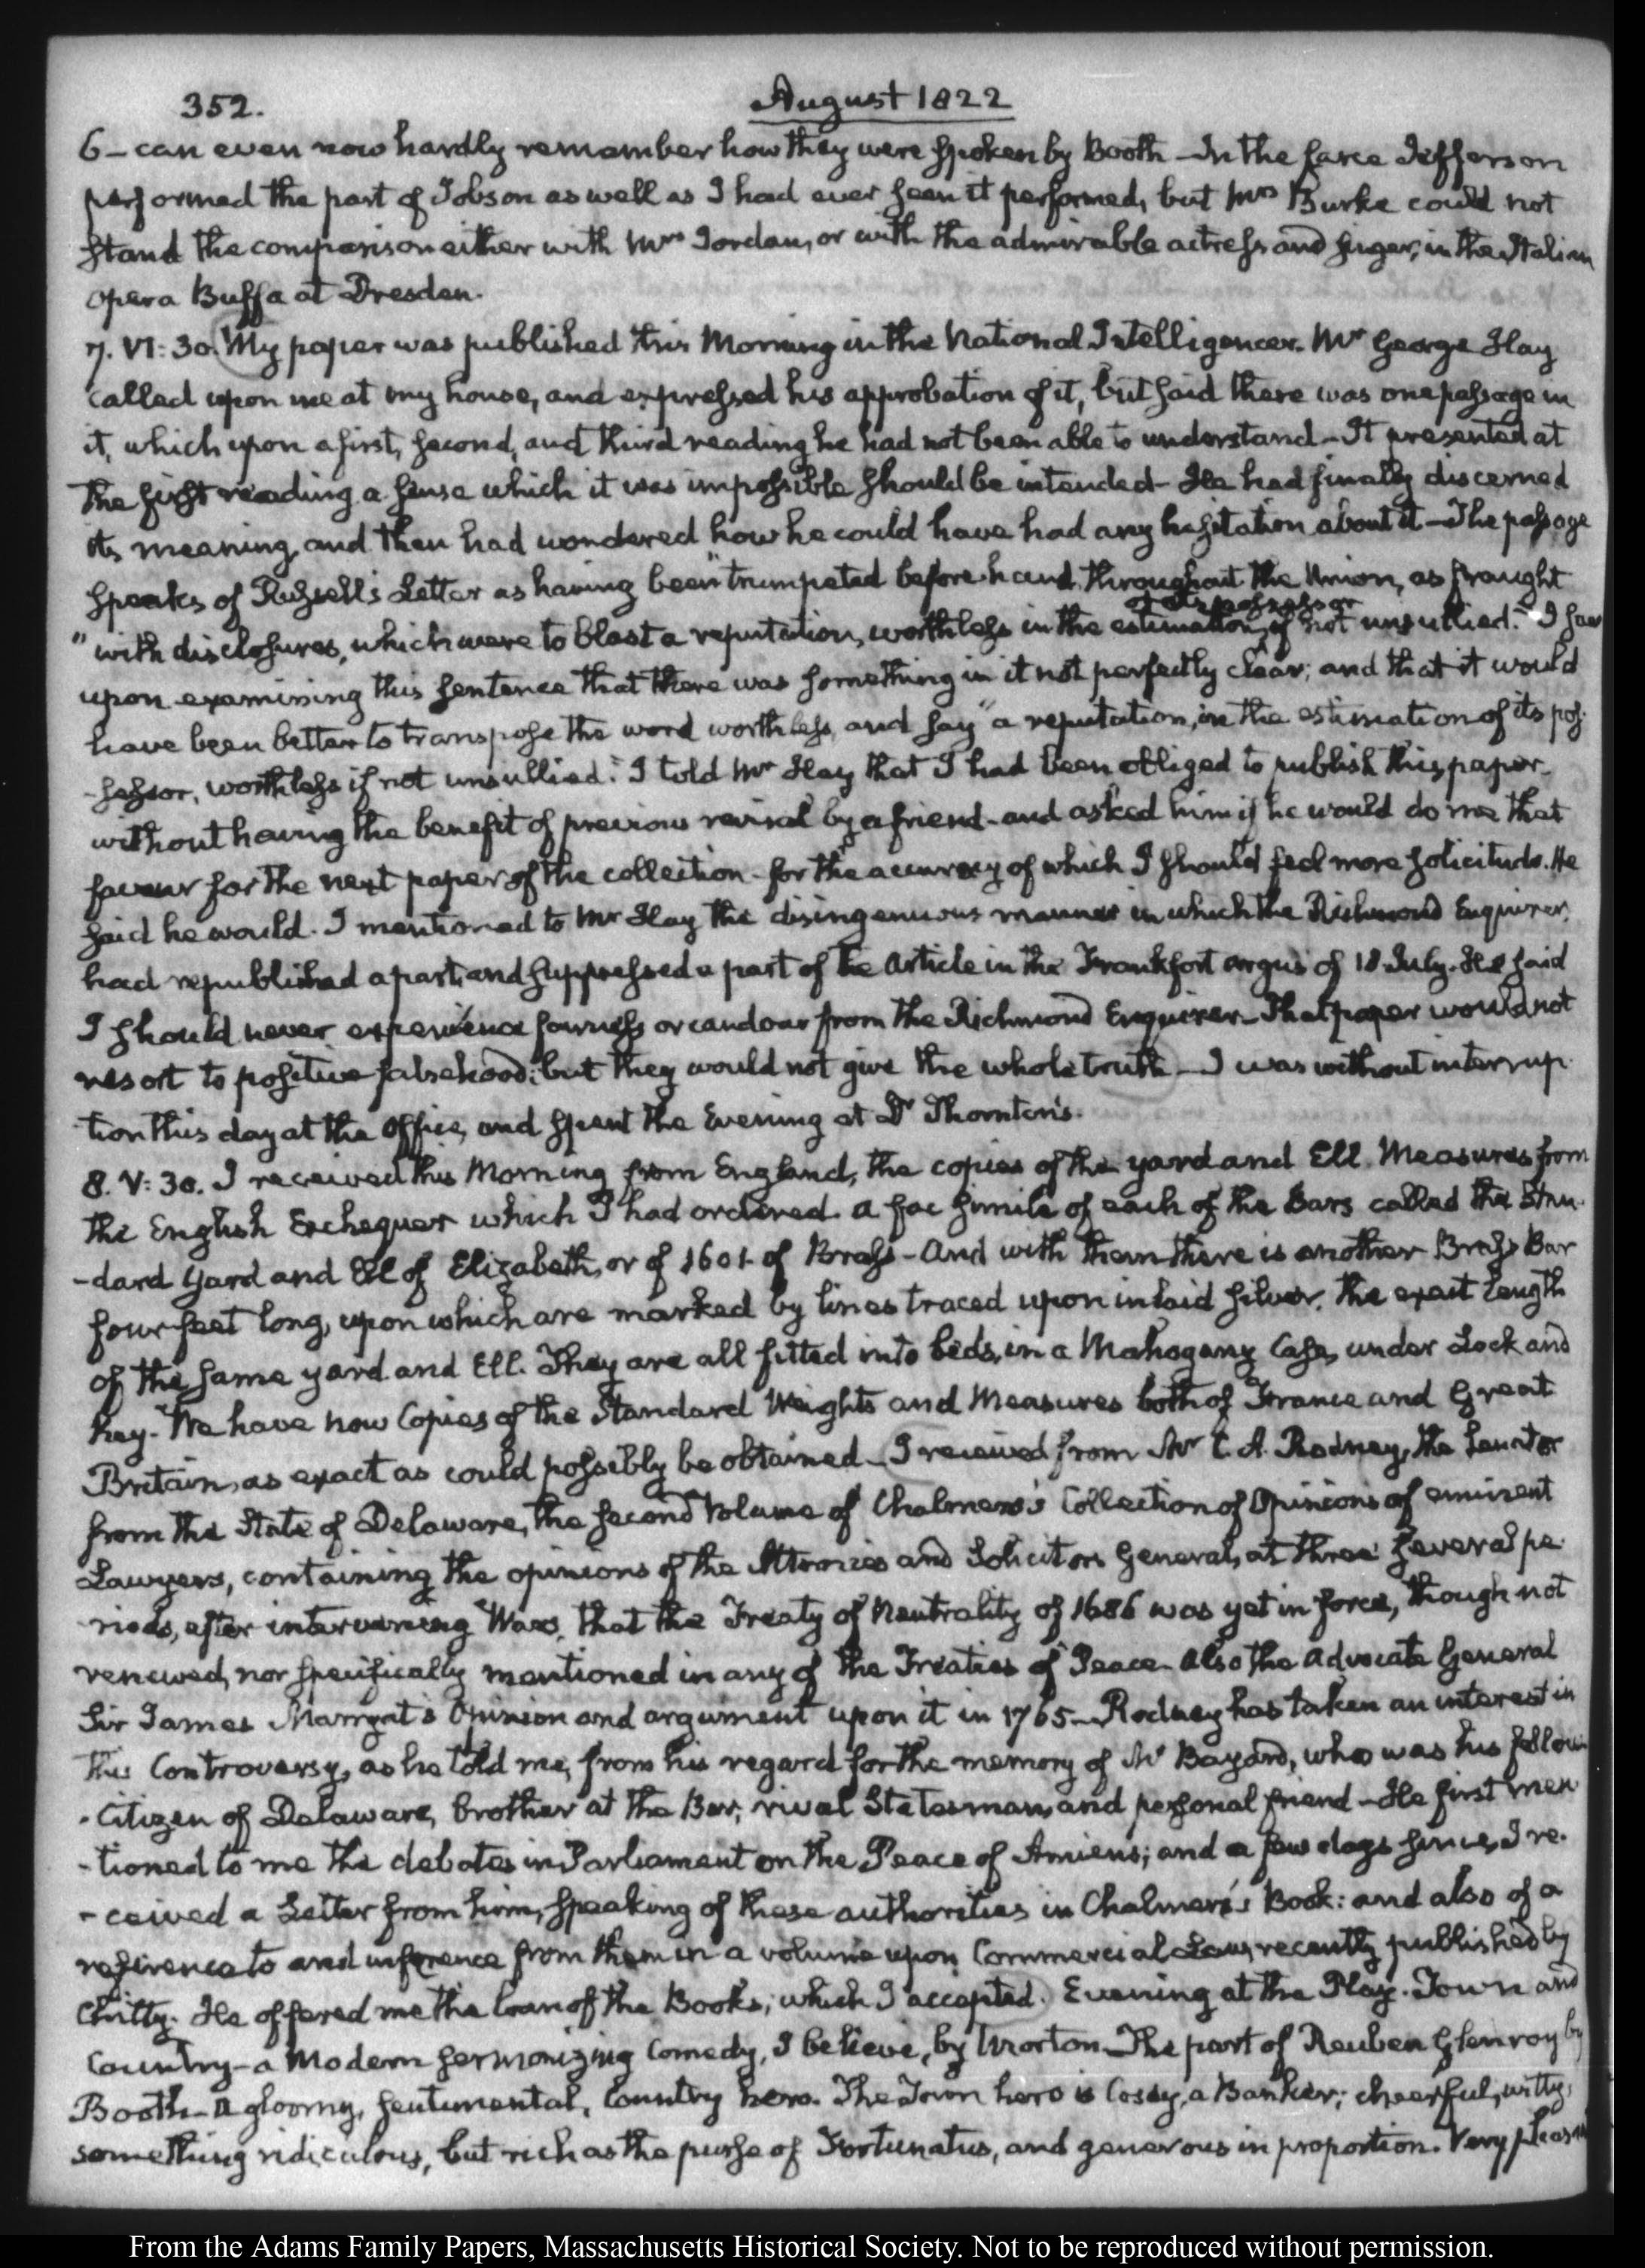 352. August 1822
6 – can even now hardly remember how they were spoken by Booth – In the farce Jefferson
performed the part of Jobson as well as I had ever seen it performed, but Mrs Burke could not
stand the comparison either with Mrs Jordan, or with the admirable actress and singer, in the Italian
opera Buffa at Dresden.
7. VI: 30. My paper was published this Morning in the National Intelligencer. Mr George Hay
called upon me at my house, and expressed his approbation of it, but said there was one passage in
it, which upon a first, second, and third reading he had not been able to understand – It presented at
the first reading a sense which it was impossible should be intended – He had finally discerned
its meaning, and then had wondered how he could have had any hesitation about it – The passage
speaks of Russell's Letter as having been "trumpeted before-hand throughout the Union, as fraught
"with disclosures, which were to blast a reputation, worthless in the estimation of its possessor if not unsullied." I saw
upon examining this sentence that there was something in it not perfectly clear; and that it would
have been better to transpose the word worthless, and say "a reputation, in the estimation of its pos-
-sessor, worthless if not unsullied." I told Mr Hay that I had been obliged to publish this paper
without having the benefit of previous revisal by a friend – and asked him if he would do me that
favour for the next paper of the collection – for the accuracy of which I should feel more solicitude. He
said he would. I mentioned to Mr Hay the disingenuous manner in which the Richmond Enquirer,
had republished a part, and suppressed a part of the Article in the Frankfort argus of 18 July. He said
I should never experience fairness or candour from the Richmond Enquirer – That paper would not
resort to positive falsehood; but they would not give the whole truth – I was without interrup-
-tion this day at the Office, and spent the Evening at Dr Thornton's.
8. V: 30. I received this Morning from England, the copies of the yard and Ell Measures from
the English Exchequer which I had ordered. a fac simile of each of the Bars called the Stan-
-dard Yard and Ell of Elizabeth, or of 1601. of Brass – And with them there is another Brass Bar
four feet long, upon which are marked by lines traced upon inlaid silver, the exact length
of the same yard and Ell. They are all fitted into beds, in a Mahogany Case, under Lock and
key. We have now Copies of the Standard Weights and Measures both of France and Great
Britain, as exact as could possibly be obtained – I received from Mr C. A. Rodney, the Senator
from the State of Delaware, the second Volume of Chalmers's Collection of Opinions of eminent
Lawyers, containing the opinions of the Attornies and Solicitors General, at three several pe-
-riods, after intervening Wars, that the Treaty of Neutrality of 1686 was yet in force, though not
renewed, nor specifically mentioned in any of the Treaties of Peace. Also the Advocate General
Sir James Marryat's Opinion and argument upon it in 1765 – Rodney has taken an interest in
this Controversy, as he told me, from his regard for the memory of Mr Bayard, who was his fellow
-Citizen of Delaware, brother at the Bar, rival Statesman, and personal friend – He first men
-tioned to me the debates in Parliament on the Peace of Amiens; and a few days since, I re-
-ceived a Letter from him, speaking of these authorities in Chalmers's Book: and also of a
reference to and inference from them in a volume upon Commercial Law, recently published by
Chitty. He offered me the loan of the Books; which I accepted. Evening at the Play. Town and
Country – a Modern sermonizing Comedy, I believe, by Morton – The part of Reuben Glenroy by
Booth – A gloomy, sentimental, Country hero. The Town hero is Cosey, a Banker; cheerful, witty,
something ridiculous, but rich as the purse of Fortunatus, and generous in proportion. Very pleasant
From the Adams Family Papers, Massachusetts Historical Society. Not to be reproduced without permission.